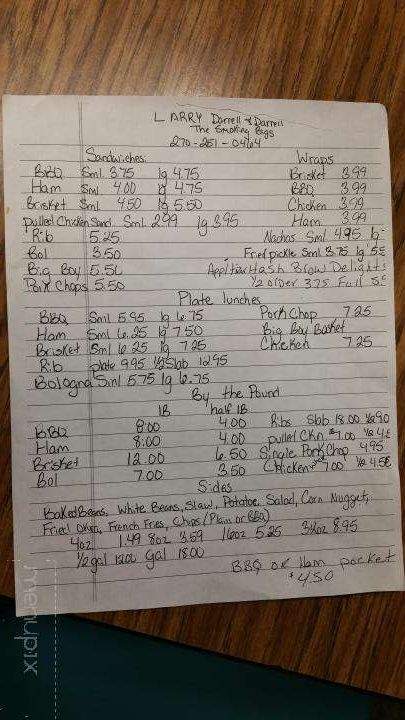 LARRY Darrell & Darrell
The Smoking Pigs
270-251-0464
Sandwiches Wraps
BBQ Sml 3.75 lg 4.75 Brisket 3.99
Ham Sml 4.00 lg 4.75 BBQ 3.99
Brisket Sml 4.50 lg 5.50 Chicken 3.99
Pulled Chicken Sand. Sml 2.99 lg 3.95 Ham 3.99
Rib 5.25 Nachos Sml 4.95 lg
Bol 3.50 Fried pickle Sml 3.75 lg
Big Boy 5.50 Hash Brow Delights
Pork Chops 5.50 1/2 order 3.75 Full
Plate lunches
BBQ Sml 5.95 lg 6.75 Pork Chop 7.25
Ham Sml 6.25 lg 7.50 Big Boy Basket
Brisket Sml 6.25 lg 7.25 Chicken 7.25
Rib plate 9.95 1/2 Slab 12.95
Bologna Sml 5.75 lg 6.75
By the Pound
lB half lB
BBQ 8.00 4.00 Ribs Slab 18.00 1/2
Ham 8.00 4.00 pulled Ckn. $7.00 1/2
Brisket 12.00 6.50 Single Pork Chop 4.95
Bol 7.00 3.50 Chicken 7.00 1/2
Sides
Baked Beans, White Beans, Slaw, Potatoe Salad, Corn Nugget,
Fried Okra, French Fries, Chips (Plain or BBQ)
4oz 1.49 8oz 3.59 16oz 5.25 32oz 8.95
1/2 gal 12.00 Gal 18.00
BBQ or Ham pocket
$4.50
menupix